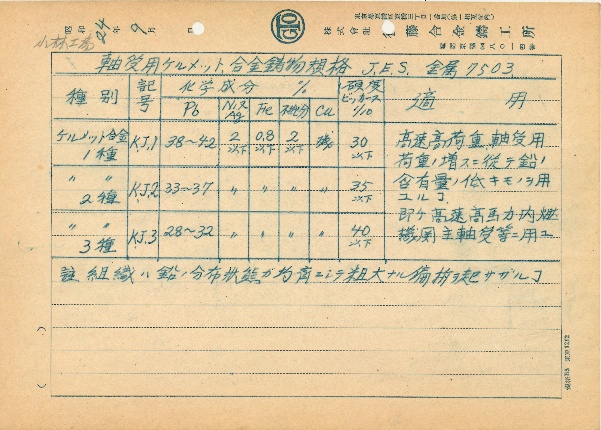 小林工場
昭和24年9月 日
株式会社 藤合金鑄工所
軸受用ケルメット合金鋳物規格 J.E.S. 金属7503
種別 記号 化学成分 % 硬度ビッカース 1/10 適用
Pb Ni又Ag Fe 不純分 Cu
ケルメット合金 1種 KJ.1 38〜42 2以下 0.8以下 2以下 残 30以下
〃 〃 2種 KJ.2 33〜37 〃 〃 〃 〃 35以下
〃 〃 3種 KJ.3 28〜32 〃 〃 〃 〃 40以下
高速高荷重軸受用
荷重ノ増スニ従テ鉛ノ
含有量ノ低キモノヲ用
ユル丁
即ケ高速高馬力内燃
機関主軸受等ニ用ユ
註 組織ハ鉛ノ分布状態ガ均斉ニシテ粗大ナル偏析ヲ起サザル丁